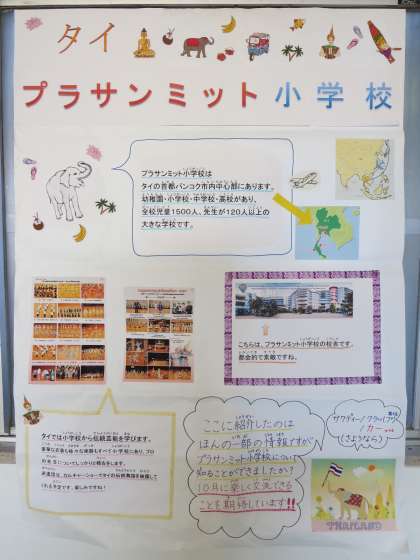 タイ
プラサンミット小学校
プラサンミット小学校は
タイの首都バンコク市内中心部にあります。
幼稚園・小学校・中学校・高校があり、
全校児童1500人、先生が120人以上の
大きな学校です。
こちらは、プラサンミット小学校の校舎です。
都会的で素敵ですね。
タイでは小学校から伝統芸能を学びます。
ここに紹介したのは
ほんの一部の情報ですが
プラサンミット小学校について
知ることができましたか?
10月に楽しく交流できる
ことを期待しています!!
(さようなら)
THAILAND